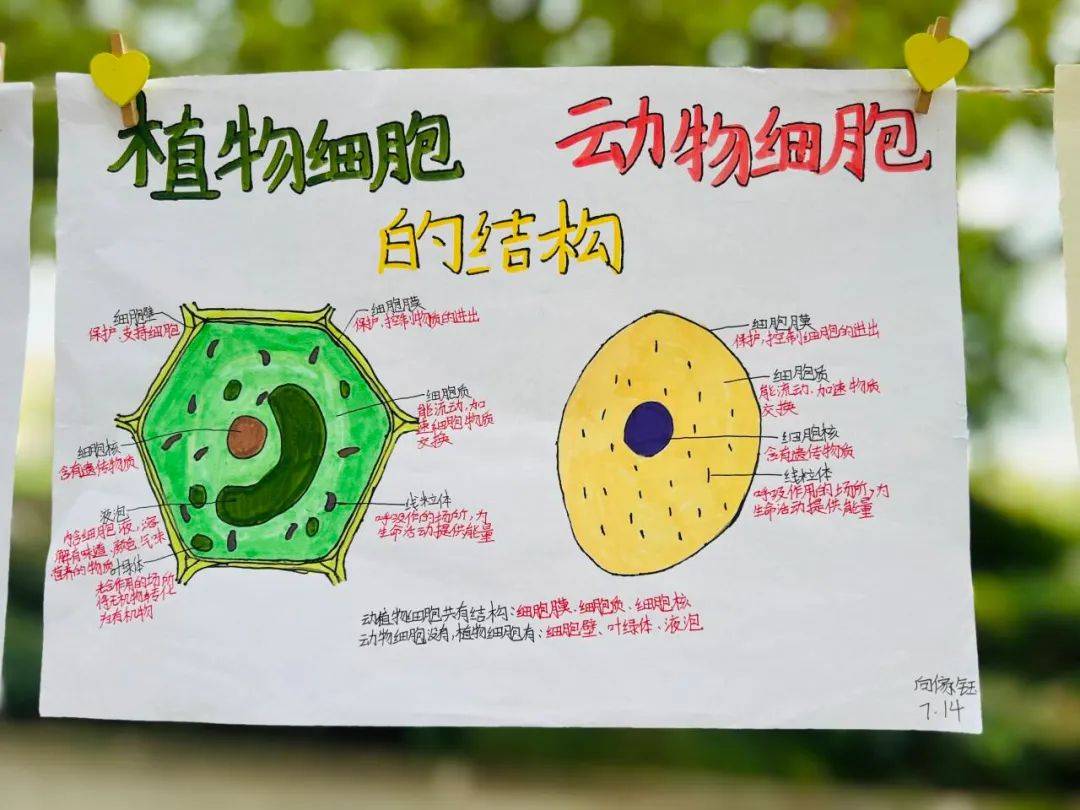 植物细胞 动物细胞
的结构
细胞壁
保护,支持细胞
细胞膜
保护,控制物质的进出
细胞质
能流动,加
速细胞物质
交换
细胞核
含有遗传物质
液泡
内含细胞液,溶
解有味道、颜色、气味
营养的物质
叶绿体
光合作用的场所
将无机物转化
为有机物
线粒体
呼吸作的场所,为
生命活动提供能量
细胞膜
保护,控制细胞的进出
细胞质
能流动、加速物质
交换
细胞核
含有遗传物质
线粒体
呼吸作用的场所,为
生命活动提供能量
动植物细胞共有结构:细胞膜、细胞质、细胞核
动物细胞没有,植物细胞有:细胞壁、叶绿体、液泡
7.14